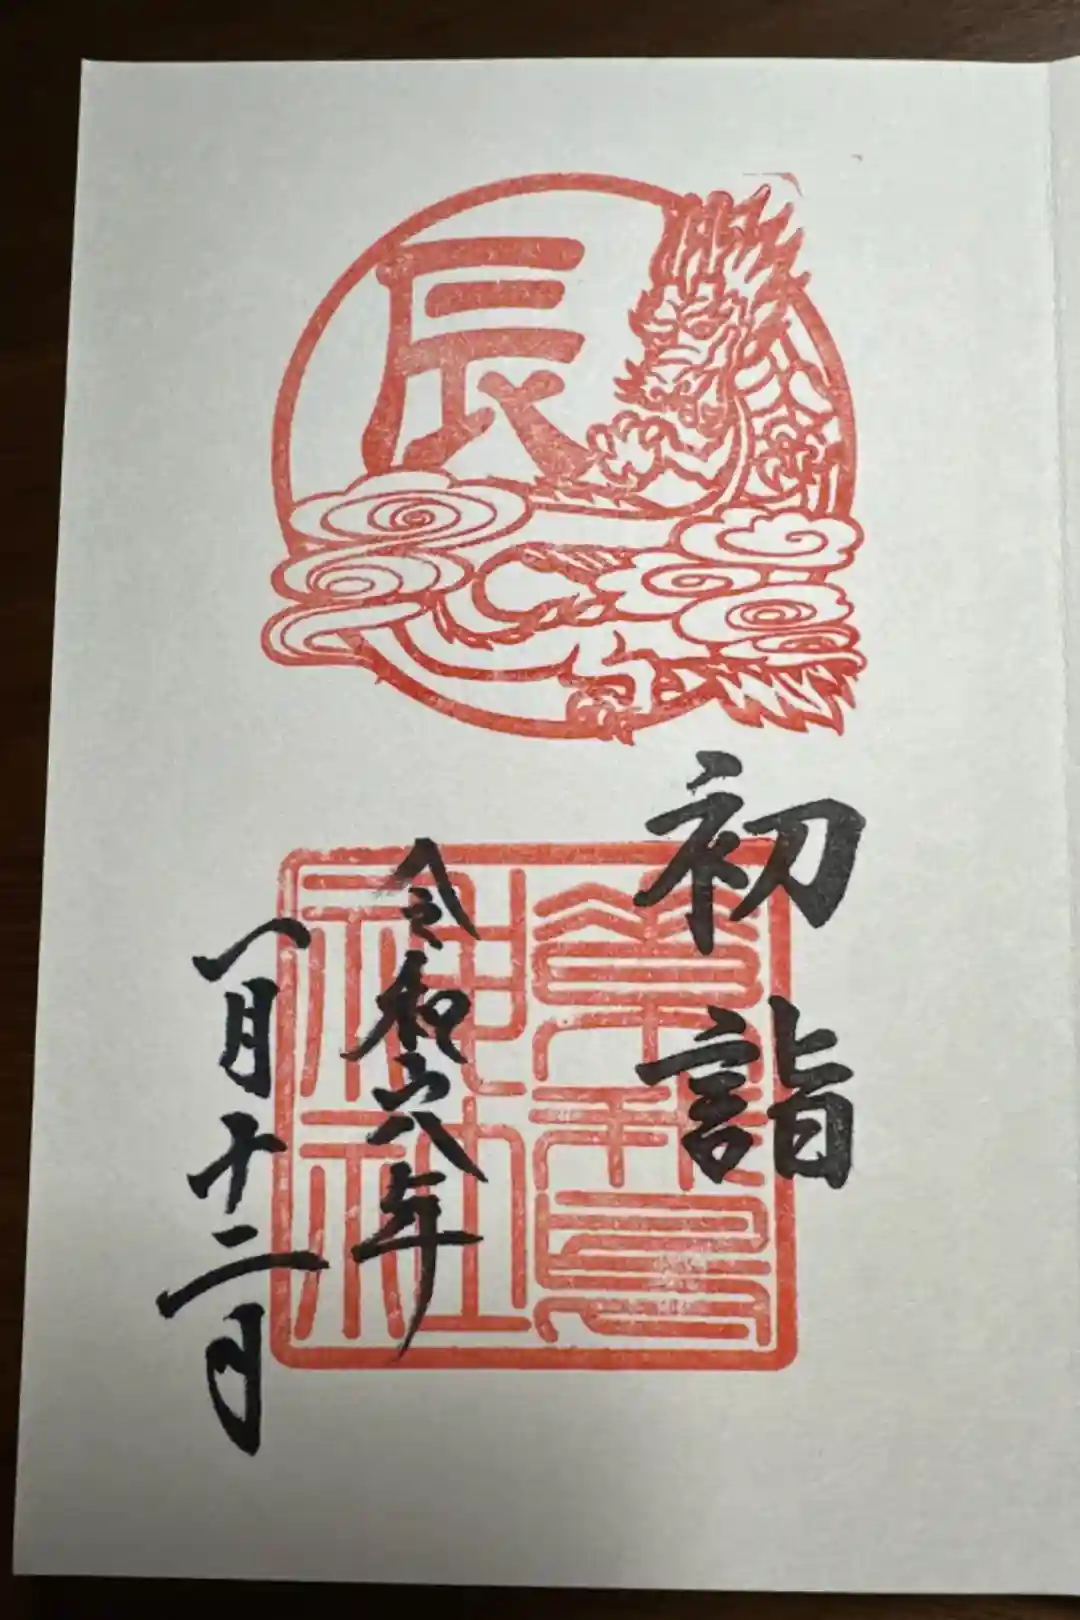 辰
初詣
令和六年
一月十二日
神社